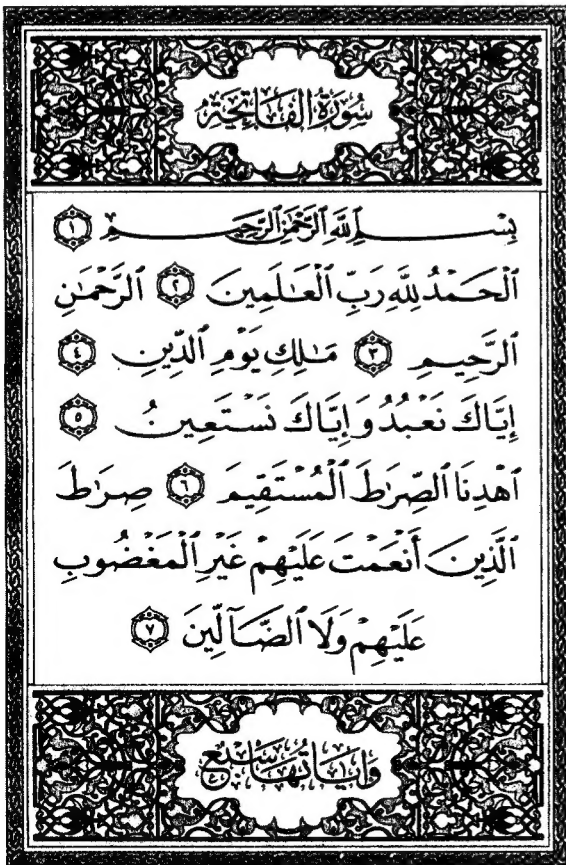 سُورَةُ الفَاتِحَةِ
بِسْمِ ٱللَّهِ ٱلرَّحْمَٰنِ ٱلرَّحِيمِ ١
ٱلْحَمْدُ لِلَّهِ رَبِّ ٱلْعَٰلَمِينَ ٢ ٱلرَّحْمَٰنِ
ٱلرَّحِيمِ ٣ مَٰلِكِ يَوْمِ ٱلدِّينِ ٤
إِيَّاكَ نَعْبُدُ وَإِيَّاكَ نَسْتَعِينُ ٥
ٱهْدِنَا ٱلصِّرَٰطَ ٱلْمُسْتَقِيمَ ٦ صِرَٰطَ
ٱلَّذِينَ أَنْعَمْتَ عَلَيْهِمْ غَيْرِ ٱلْمَغْضُوبِ
عَلَيْهِمْ وَلَا ٱلضَّآلِّينَ ٧
وَآيَاتُهَا سَبْعٌ